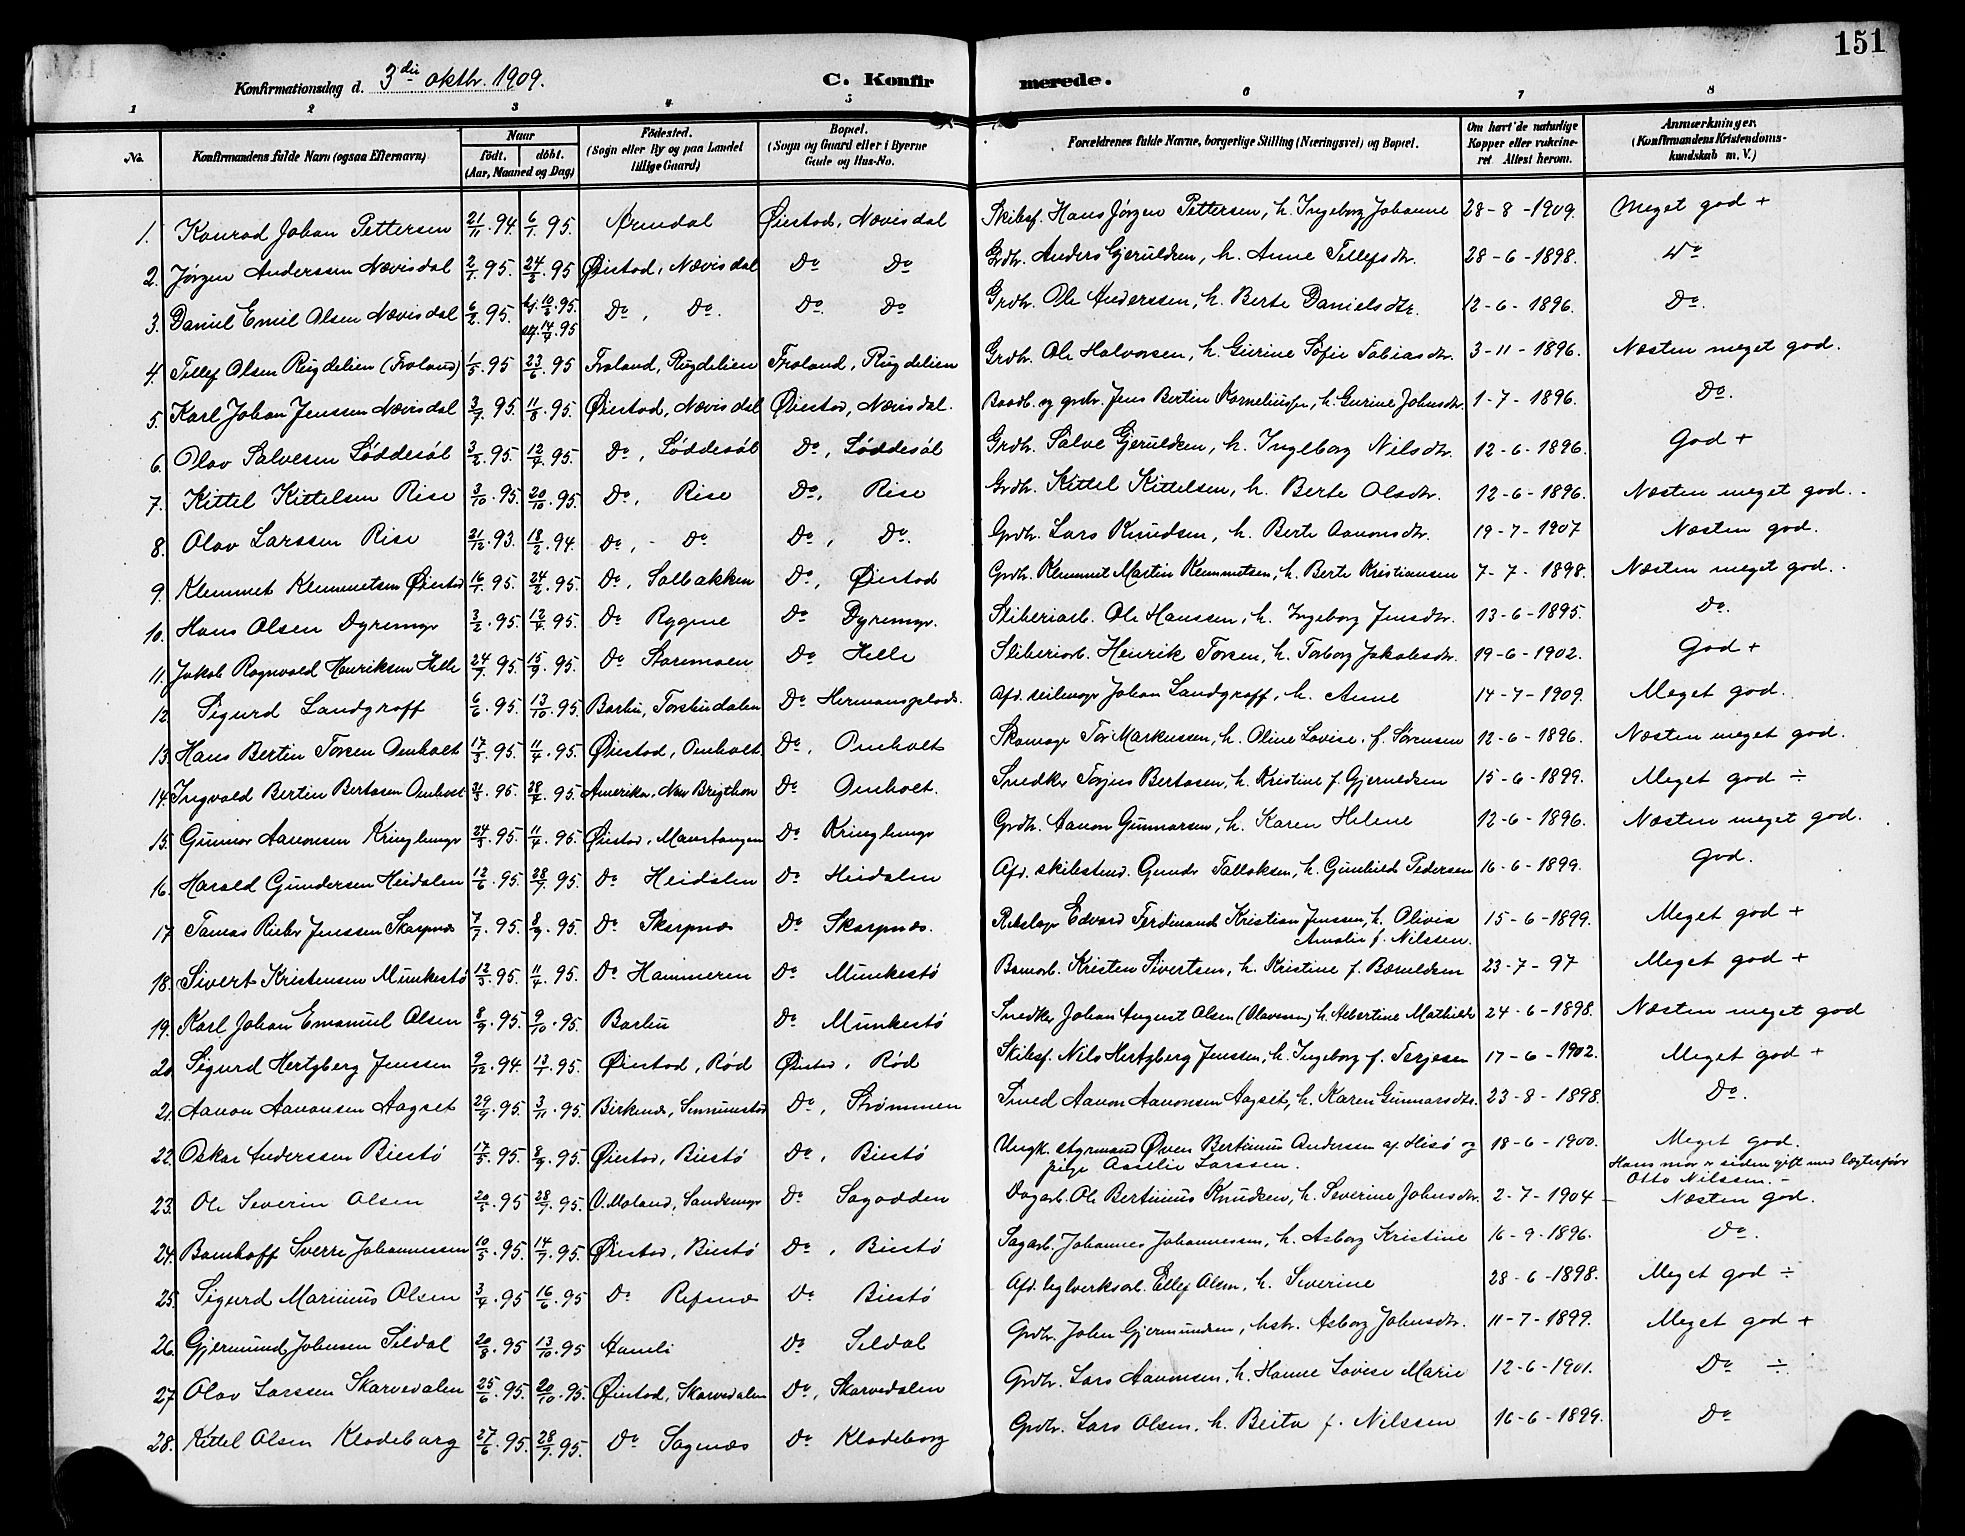 151
Konfirmationsdag d. 3die oktbr. 1909. C. Konfirmerede.
1 2 3 4 5 6 7 8
No. Konfirmandens fulde Navn (ogsaa Efternavn) Naar født. døbt. (Aar, Maaned og Dag) Fødested. (Sogn eller By og paa Landet tillige Gaard) Bopæl. (Sogn og Gaard eller i Byerne Gade og Hus-No. Forældrenes fulde Navne, borgerlige Stilling (Næringsvei) og Bopæl. Om havt de naturlige Kopper eller vakcineret Attest herom. Anmærkninger. (Konfirmandens Kristendomskundskab m. V.)
1. Konrad Johan Pettersen 21/11. 94. 6/1. 95. Arendal Øiestad, Nævisdal Skibsf. Hans Jørgen Pettersen, h. Ingeborg Johanne 28-8-1909. Meget god +
2. Jørgen Anderssen Nævisdal 2/1. 95. 24/2. 95 Øiestad, Nævisdal Do Do Grdbr. Anders Gjeruldsen, h. Anne Tellefsdtr. 28-6-1898. Do
3. Daniel Emil Olsen Nævisdal 6/2. 95. hj. 10/2. 95. og 14/4. 95 Do, Do. Do. Do Grdbr. Ole Anderssen, h. Berte Danielsdtr. 12-6-1896. Do.
4. Tellef Olsen Rugdelien (Froland) 1/5. 95 23/6. 95 Froland, Rugdelien Froland, Rugdelien Grdbr. Ole Halvorsen, h. Gurine Sofie Tobiasdtr. 3-11-1896. Næsten meget god.
5. Karl Johan Jenssen Nævisdal 3/7. 95. 11/8. 95. Øiestad, Nævisdal Øiestad, Nævisdal. Baadb. og grdbr. Jens Bertin Korneliussen, h. Gurine Johnsdtr. 1-7-1896. Do.
6. Olav Salvesen Løddesøl 3/2. 95. 12/4. 95. Do, Løddesøl Do, Løddesøl Grdbr. Salve Gjeruldsen, h. Ingeborg Nilsdtr. 12-6-1896. God +
7. Kittel Kittelsen Rise 3/10. 95. 20/10. 95. Do, Rise Do, Rise Grdbr. Kittel Kittelsen, h. Berte Olsdtr. 12-6-1896. Næsten meget god.
8. Olav Larssen Rise 21/12. 93. 18/2. 94. Do, - Do Do, Do. Grdbr. Lars Knudsen, h. Berte Aanonsdtr. 19-7-1907 Næsten god.
9. Klemmet Klemmetsen Øiestad 16/1. 95. 24/2. 95. Do, Solbakken Do, Øiestad Grdbr. Klemmet Martin Klemmetsen, h. Berte Kristiansen 7-7-1898. Næsten meget god.
10. Hans Olsen Dyremyr 3/2. 95. 12/4. 95. Do Rygene Do Dyremyr. Sliberiarb. Ole Hanssen, h. Ingeborg Jensdtr. 13-6-1895. Do.
11. Jakob Ragnvald Henriksen Helle 24/7. 95. 15/9. 95. Do Storemoen Do Helle Sliberiarb. Henrik Torsen, h. Torborg Jakobsdtr. 19-6-1902. God +
12 Sigurd Landgraff 6/6. 95. 13/10. 95. Barbu, Torsbudalen Do Hermansplads. Afd. seilmager Johan Landgraff, h. Anne 14-7-1909. Meget god.
13. Hans Bertin Torsen Omholt 17/3. 95. 11/4. 95. Øiestad, Omholt. Do, Omholt Skomager Tor Markussen, h. Oline Lovise f. Sørensen 12-6-1896. Næsten meget god.
14. Ingvald Bertin Bertasen Omholt. 95. 28/4. 95. Amerika, New Brigthon Do Omholt. Snedker Torjus Bertasen, h. Kristine f. Gjeruldsen 15-6-1899. Meget god ÷
15. Gunnar Aanonsen Kringlemyr 24/3. 95. 11/4. 95. Øiestad, Maurtangen Do Kringlemyr Grdbr. Aanon Gunnarsen, h. Karen Helene 12-6-1896. Næsten meget god.
16. Harald Gundersen Heidalen 12/6. 95. 28/7. 95. Do Heidalen Do Heidalen Afd. skibstmd. Gunder Tallaksen, h. Gunhild Pedersen 16-6-1899. God.
17 Tomas Rieber Jenssen Skarpnes 7/7. 95. 8/9. 95. Do Skarpnæs Do Skarpnæs. Rebslager Edvard Ferdinand Kristian Jenssen, h. Olivia Amalie f. Nilssen. 15-6-1899. Meget god +
18. Sivert Kristensen Munkestø 12/3. 95. 11/4. 95. Do Hammeren Do Munkestø Kristen Sivertsen, h. Kristine f. 23-7-97 Meget god +
19. Karl Johan Emanuel Olsen 8/9. 95. 9/10. 95. Barbu Do Munkestø Snedker Johan August Olsen (Olavesen) h. Albertine Mathilde 24-6-1898. Næsten meget god
20 Sigurd Hertzberg Jenssen 9/12. 94. 13/1. 95. Øiestad, Rød Øiestad, Rød Skibsf. Nils Hertzberg Jenssen, h. Ingeborg f. Terjesen 17-6-1902. Meget god +
21. Aanon Aanonsen Aagset 29/9. 95. 3/11. 95. Birkenes, Do, Strømmen Smed Aanon Aanonsen Aagset, h. Karen Gunnarsdtr. 23-8-1898. Do.
22. Oskar Anderssen Biestø 17/5. 95. 8/9. 95. Øiestad, Biestø Do, Biestø Ungk. styrmand Øven Bertinius Andersen af Hisø og pige Aaselie Larssen. 18-6-1900. Meget god. Hans mor er siden gift med lægterfør. Otto Nilssen.
23. Ole Severin Olsen 95 28/7. 95. V. Moland, Sandsmyr Do Sagodden Dagarb. Ole Bertinius Knudsen, h. Severine Johnsdtr. 2-7-1904 - Næsten god.
24. Bomhoff Sverre Johannessen 10/5. 95. 14/7. 95. Øiestad, Biestø Do, Biestø Sagarb. Johannes Johannessen, h. Asborg Kristine 16-9-1896. Do.
25. Sigurd Marinius Olsen 3/4. 95 16/6. 95 Do Refsnes Do Biestø Afd. teglverksarb. Ellef Olsen, h. Severine 28-6-1898. Meget god ÷
26. Gjermund Johnsen Seldal 20/8. 95 13/10. 95 Aamli Do Seldal Grdbr. John Gjermundsen, hstr. Asborg Johnsdtr. 11-7-1899. Meget god +
27. Olav Larssen Skarvedalen 25/6. 95. 20/10. 95. Øiestad, Skarvedalen Do, Skarvedalen Grdbr. Lars Aanonsen, h. Hanne Lovise Marie 12-6-1901. Do ÷
28. Kittel Olsen Klodeborg 27/6. 95. 28/7. 95. Do Sagenæs Do Klodeborg Grdbr. Lars Olsen, h. Berta f. Nilssen 16-6-1899. Do